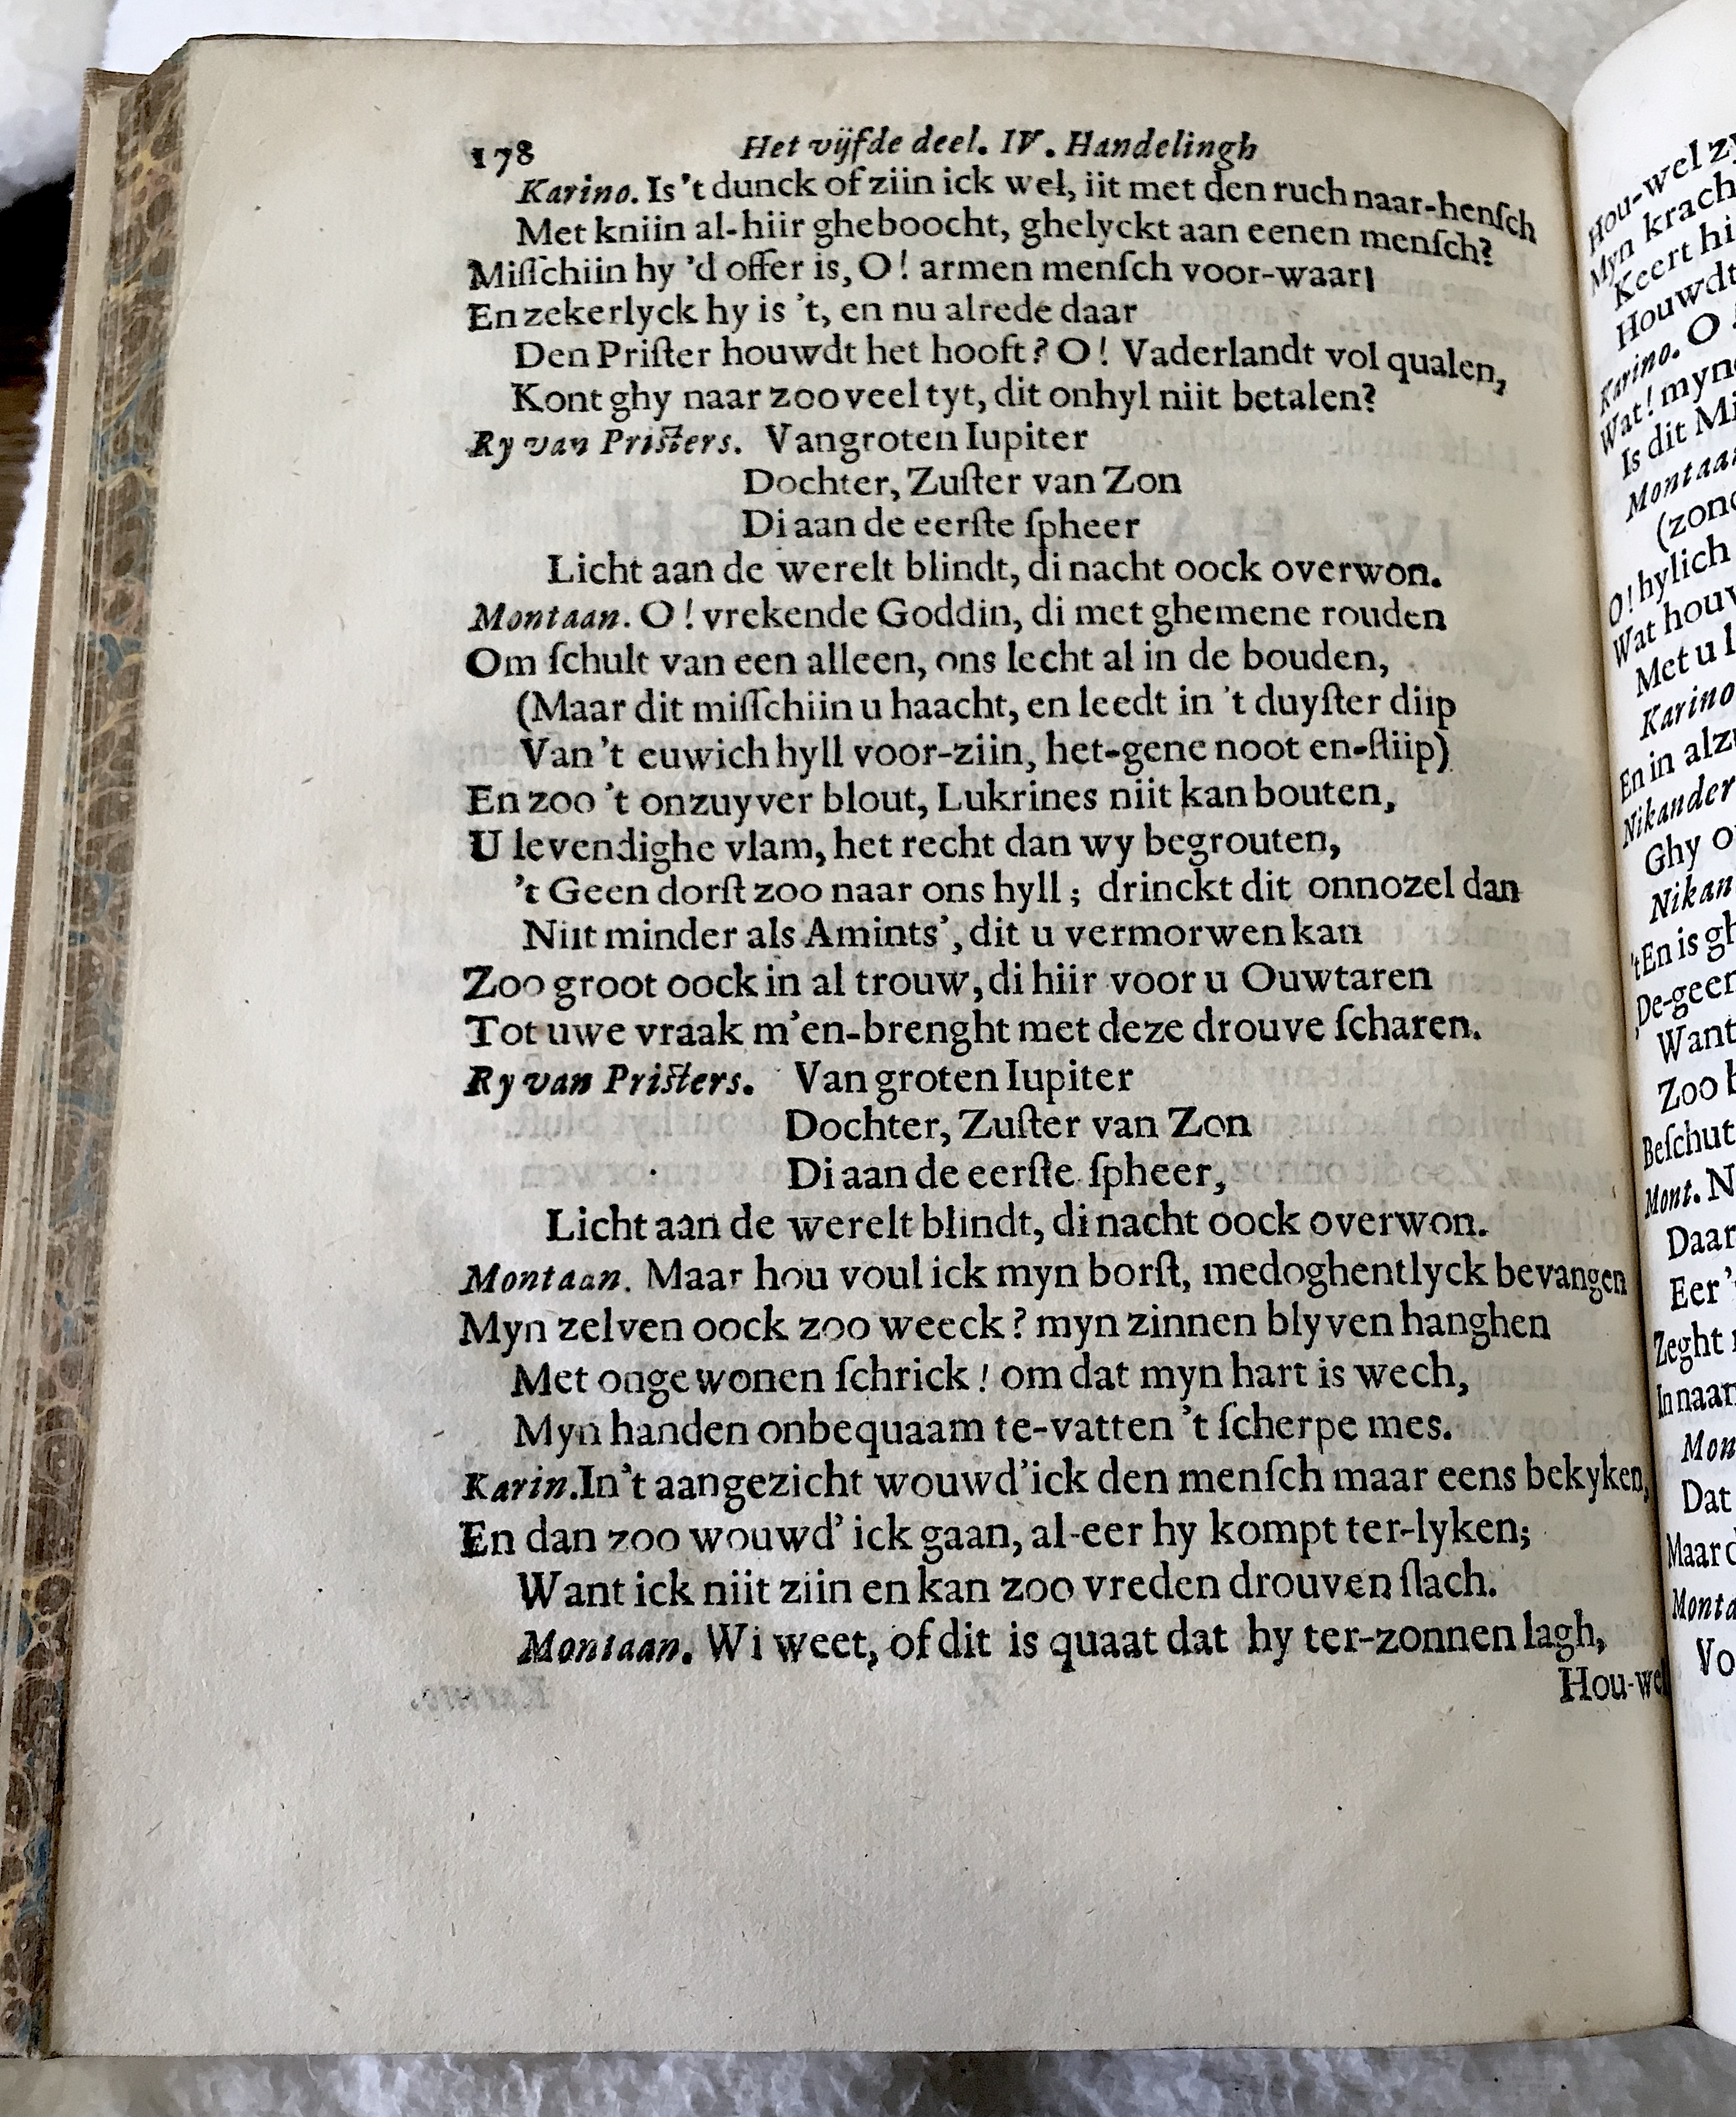 178 Het vijfde deel. IV. Handelingh
Karino. Is 't dunck of ziin ick wel, iit met den ruch naar-henſch
Met kniin al-hiir gheboocht, ghelyckt aan eenen menſch?
Miſſchiin hy 'd offer is, O! armen menſch voor-waar!
En zekerlyck hy is 't, en nu alrede daar
Den Priſter houwdt het hooft? O! Vaderlandt vol qualen,
Kont ghy naar zoo veel tyt, dit onhyl niit betalen?
Ry van Priſters. Van groten Iupiter
Dochter, Zuſter van Zon
Di aan de eerſte ſpheer
Licht aan de werelt blindt, di nacht oock overwon.
Montaan. O! vrekende Goddin, di met ghemene rouden
Om ſchult van een alleen, ons lecht al in de bouden,
(Maar dit miſſchiin u haacht, en leedt in 't duyſter diip
Van 't euwich hyll voor-ziin, het-gene noot en-ſliip)
En zoo 't onzuyver blout, Lukrines niit kan bouten,
U levendighe vlam, het recht dan wy begrouten,
't Geen dorſt zoo naar ons hyll; drinckt dit onnozel dan
Niit minder als Amints', dit u vermorwen kan
Zoo groot oock in al trouw, di hiir voor u Ouwtaren
Tot uwe vraak m'en-brenght met deze drouve ſcharen.
Ry van Priſters. Van groten Iupiter
Dochter, Zuſter van Zon
Di aan de eerſte ſpheer,
Licht aan de werelt blindt, di nacht oock overwon.
Montaan. Maar hou voul ick myn borſt, medoghentlyck bevangen
Myn zelven oock zoo weeck? myn zinnen blyven hanghen
Met ongewonen ſchrick! om dat myn hart is wech,
Myn handen onbequaam te-vatten 't ſcherpe mes.
Karin. In't aangezicht wouwd'ick den menſch maar eens bekyken,
En dan zoo wouwd' ick gaan, al-eer hy kompt ter-lyken;
Want ick niit ziin en kan zoo vreden drouven ſlach.
Montaan. Wi weet, of dit is quaat dat hy ter-zonnen lagh,
Hou-wel
Hou-wel
Myn
Keert
Houwdt
Karino. O
Wat!
Is dit
(zon
O! hylich
Wat
Met u
Karino
En in
Nikander
Ghy
Nikan
'tEn is
De-geen
Want
Zoo
Beſchut
Mont.
Daar
Eer
Zeght
In naam
Mon
Dat
Maar
Monta
Vo